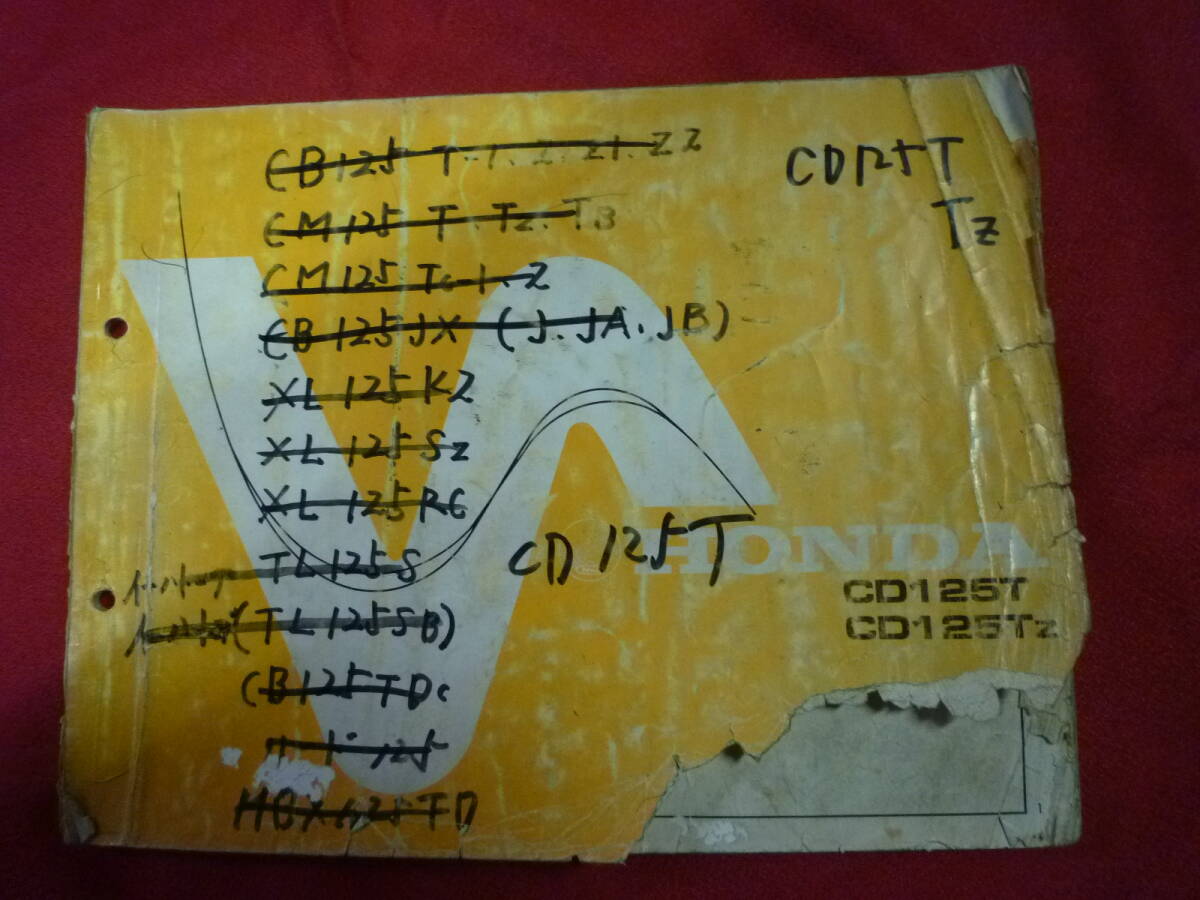 CB125 T-1.2.Z1.ZZ
CM125 T.Tz.TB
CM125 Tc-1.2
CB125JX (J.JA.JB)
XL125K2
XL125Sz
XL125RC
TL125S
(TL125SB)
CB125TDc
125
CD125T
Tz
CD125T
HONDA
CD125T
CD125Tz